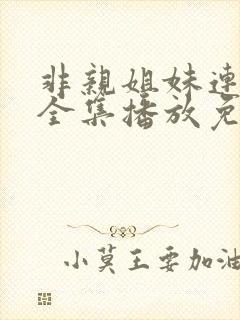 非親姐妹連
全集播放免
小莫王要加油